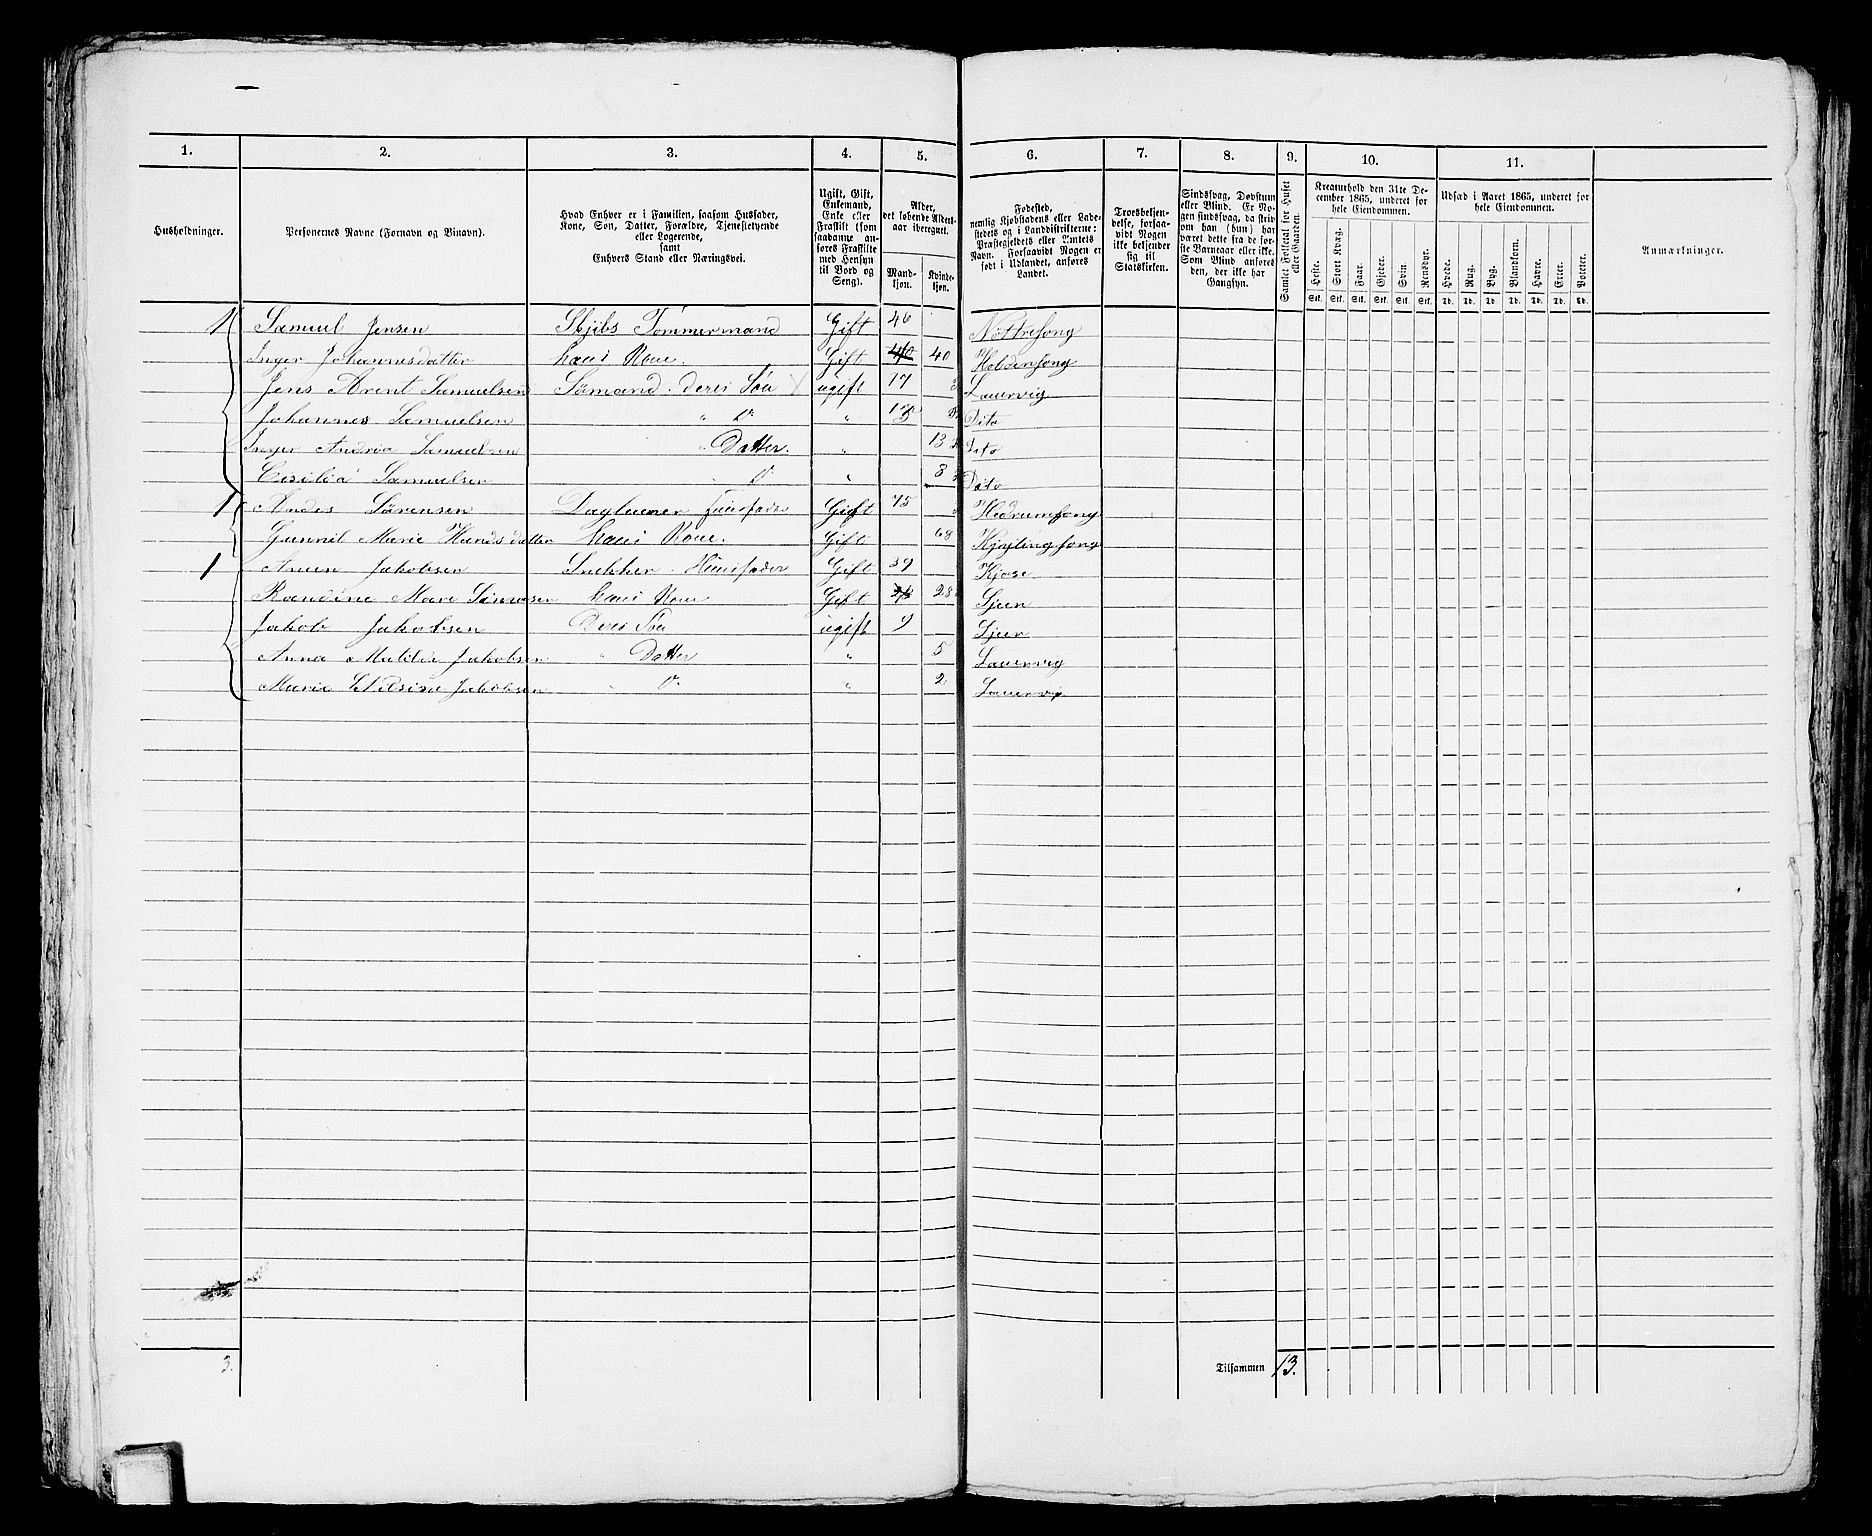 1. 2. 3. 4. 5. 6. 7. 8. 9. 10. 11.
Husholdninger.
Personernes Navne (Fornavn og Vinavn).
Hvad Enhver er i Familien, saasom Husfader,
Kone, Søn, Datter, Forældre, Tjenestetyende
eller Logerende,
samt
Enhvers Stand eller Næringsvei.
Ugift, Gift,
Enkemand,
Enke eller
Fraskilt (som
saadanne an-
føres Fraskilte
med Hensyn
til Bord og
Seng).
Alder,
det løbende Alders-
aar iberegnet.
Mand-
kjøn.
Kvinde-
kjøn.
Fødested,
nemlig Kjøbstadens eller Lade-
stedets og i Landdistrikterne:
Præstegjeldets eller Amtets
Navn. Forsaavidt Nogen er
født i Udlandet, anføres
Landet.
Troesbekjen-
delse, forsaa-
vidt Nogen
ikke bekjender
sig til
Statskirken.
Sindssvag, Døvstum
eller Blind. Er No-
gen sindssvag, da skriv
om han (hun) har
været dette fra de før-
ste Barneaar eller ikke.
Som Blind anføres
den, der ikke har
Gangsyn.
Samlet Folketal for Huset
eller Gaarden.
Kreaturhold den 31te De-
cember 1865, underet for
hele Eiendommen.
Heste. Stort Kvæg. Faar. Gjeder. Svin. Rensdyr.
Stk. Stk. Stk. Stk. Stk. Stk.
Udsæd i Aaret 1865, underet for
hele Eiendommen.
Hvede. Rug. Byg. Blandkorn. Havre. Erter. Poteter.
Td. Td. Td. Td. Td. Td. Td.
Anmærkninger.
1 Samuel Jensen Skjibs Tømmermand Gift 46
Inger Johannesdatter hans Kone. Gift 40 40
Jens Arent Samuelsen Sømand. Deres Søn ugift 17 Laurvig
Johannes Samuelsen " D° " Dito
Inger Andrea Samuelsen " Datter. " 13 Dito
Cesilia Samuelsen " D° " 8 Dito
1 Andes Sørensen Dagluener Huusfader Gift 75
Gunnil Marie Hansdatter hans Kone. Gift 68
1 Anun Jakobsen Snekker. Huusfader Gift 39 Kjose
Randine Marie hans Kone Gift 28
Jakob Jakobsen Deres Søn ugift 9
Anna Matilde Jakobsen " Datter " 5 Laurvig
Marie Jakobsen " D° " 2 Laurvig
3. Tilsammen 13.